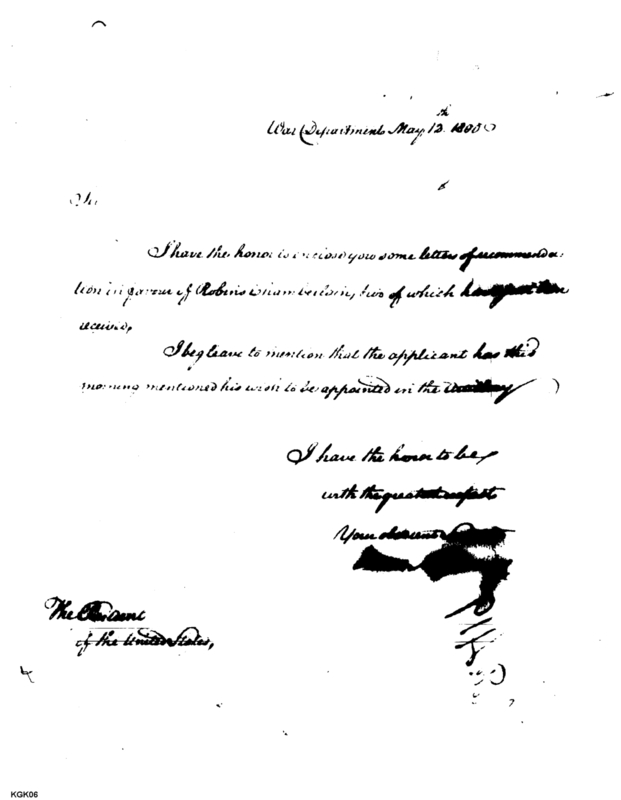 War Department May 12th 1800
Sir
I have the honor to enclose you some letters of recommenda-
tion in favour of Robins Chamberlain, two of which has just been
received,
I beg leave to mention that the applicant has this
morning mentioned his wish to be appointed in the
I have the honor to be
with the greatest respect
Your obedient
The President
of the United States,
KGK06